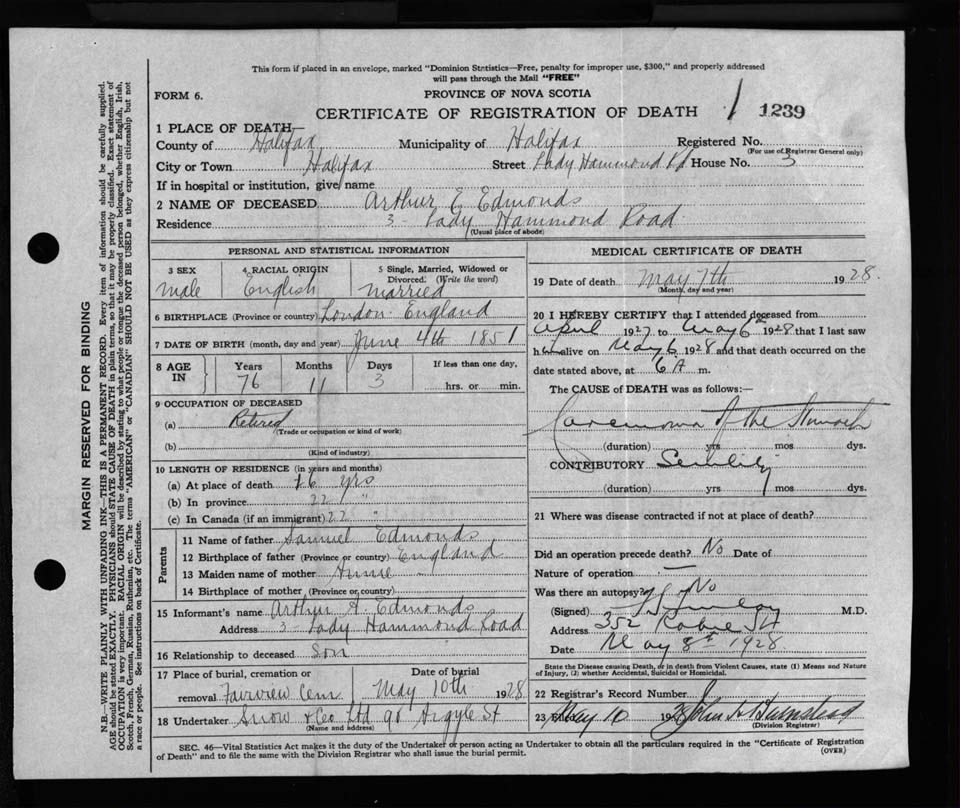 This form if placed in an envelope, marked "Dominion Statistics—Free, penalty for improper use, $300," and properly addressed
will pass through the Mail "FREE"
FORM 6.
PROVINCE OF NOVA SCOTIA
CERTIFICATE OF REGISTRATION OF DEATH / 1239
1 PLACE OF DEATH—
County of Halifax Municipality of Halifax Registered No.
(For use of Registrar General only)
City or Town Halifax Street Lady Hammond Rd House No. 3
If in hospital or institution, give name
2 NAME OF DECEASED Arthur E Edmonds
Residence 3 - Lady Hammond Road
(Usual place of abode)
PERSONAL AND STATISTICAL INFORMATION
3 SEX male
4 RACIAL ORIGIN English
5 Single, Married, Widowed or Divorced. (Write the word) married
6 BIRTHPLACE (Province or country) London England
7 DATE OF BIRTH (month, day and year) June 4th 1851
8 AGE IN Years 76 Months 11 Days 3 If less than one day, hrs. or min.
9 OCCUPATION OF DECEASED
(a) Retired
(Trade or occupation or kind of work)
(b)
(Kind of industry)
10 LENGTH OF RESIDENCE (in years and months)
(a) At place of death 16 yrs
(b) In province 22 "
(c) In Canada (if an immigrant) 22 "
Parents
11 Name of father Samuel Edmonds
12 Birthplace of father (Province or country) England
13 Maiden name of mother Annie -
14 Birthplace of mother (Province or country)
15 Informant's name Arthur A. Edmonds
Address 3 - Lady Hammond Road
16 Relationship to deceased Son
17 Place of burial, cremation or removal Fairview Cem
Date of burial May 10th 1928
18 Undertaker Snow & Co Ltd 90 Argyle St
(Name and address)
MEDICAL CERTIFICATE OF DEATH
19 Date of death May 7th 1928.
(Month, day and year)
20 I HEREBY CERTIFY that I attended deceased from
April 1927 to May 6th 1928 that I last saw
him alive on May 6 1928 and that death occurred on the
date stated above, at 6 A m.
The CAUSE of DEATH was as follows:—
of the Stomach
(duration) yrs mos dys.
CONTRIBUTORY Senility
(duration) yrs mos dys.
21 Where was disease contracted if not at place of death?
Did an operation precede death? No Date of
Nature of operation —
Was there an autopsy? No
(Signed) M.D.
Address 352 Robie St
Date May 8th 1928.
State the Disease causing Death, or in death from Violent Causes, state (1) Means and Nature
of Injury, (2) whether Accidental, Suicidal or Homicidal.
22 Registrar's Record Number
23 Filed May 10 1928 John
(Division Registrar)
SEC. 46—Vital Statistics Act makes it the duty of the Undertaker or person acting as Undertaker to obtain all the particulars required in the "Certificate of Registration
of Death" and to file the same with the Division Registrar who shall issue the burial permit.
(OVER)
MARGIN RESERVED FOR BINDING
N.B.—WRITE PLAINLY WITH UNFADING INK—THIS IS A PERMANENT RECORD. Every item of information should be carefully supplied.
AGE should be stated EXACTLY. PHYSICIANS should STATE CAUSE OF DEATH in plain terms, so that it may be properly classified. Exact statement of
OCCUPATION is very important. RACIAL ORIGIN will be described by stating to what people or tongue the deceased person belonged, whether English, Irish,
Scotch, French, German, Russian, Ruthenian, etc. The terms "AMERICAN" or "CANADIAN" SHOULD NOT BE USED as they express citizenship but not
a race or people. See instructions on back of Certificate.